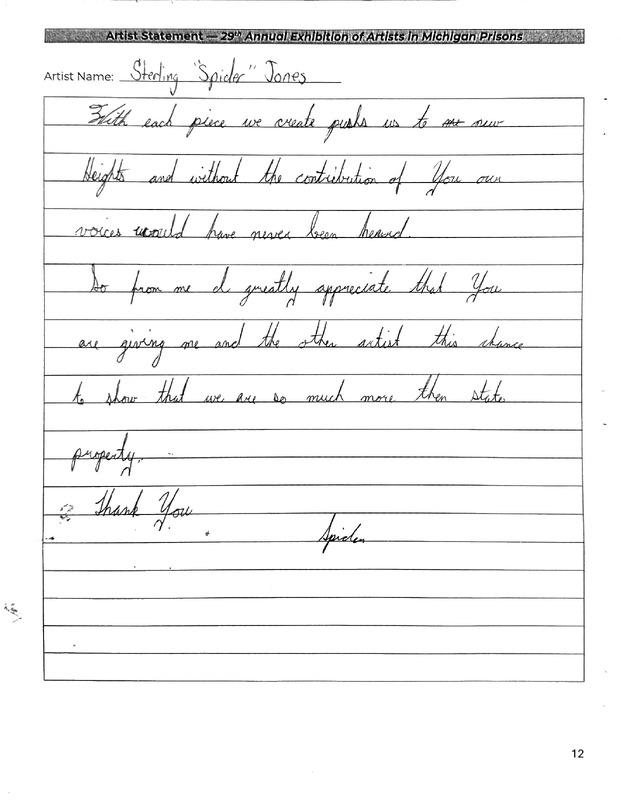 Artist Statement — 29th Annual Exhibition of Artists in Michigan Prisons
Artist Name: Sterling "Spider" Jones
With each piece we create pushs us to new
Heights and without the contribution of You our
voices would have never been heard.
So from me I greatly appreciate that You
are giving me and the other artist this chance
to show that we are so much more then state
property.
Thank You
Spider
12